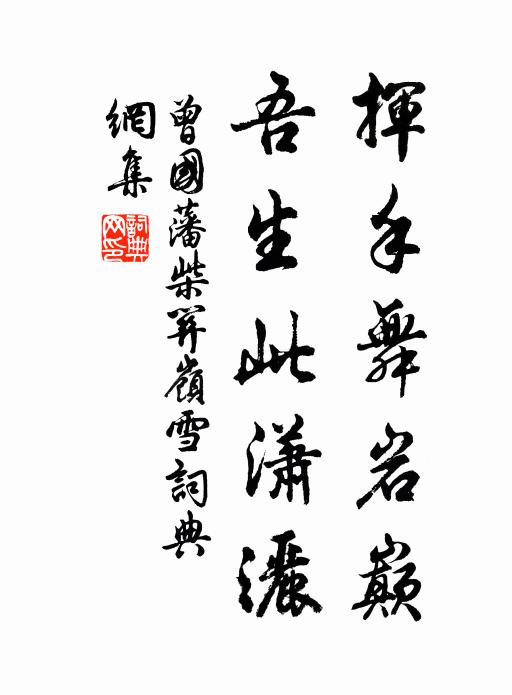 揮手舞岩巔
吾生此瀟灑
曾國藩柴關嶺雪詞典
網集
詞典
网印